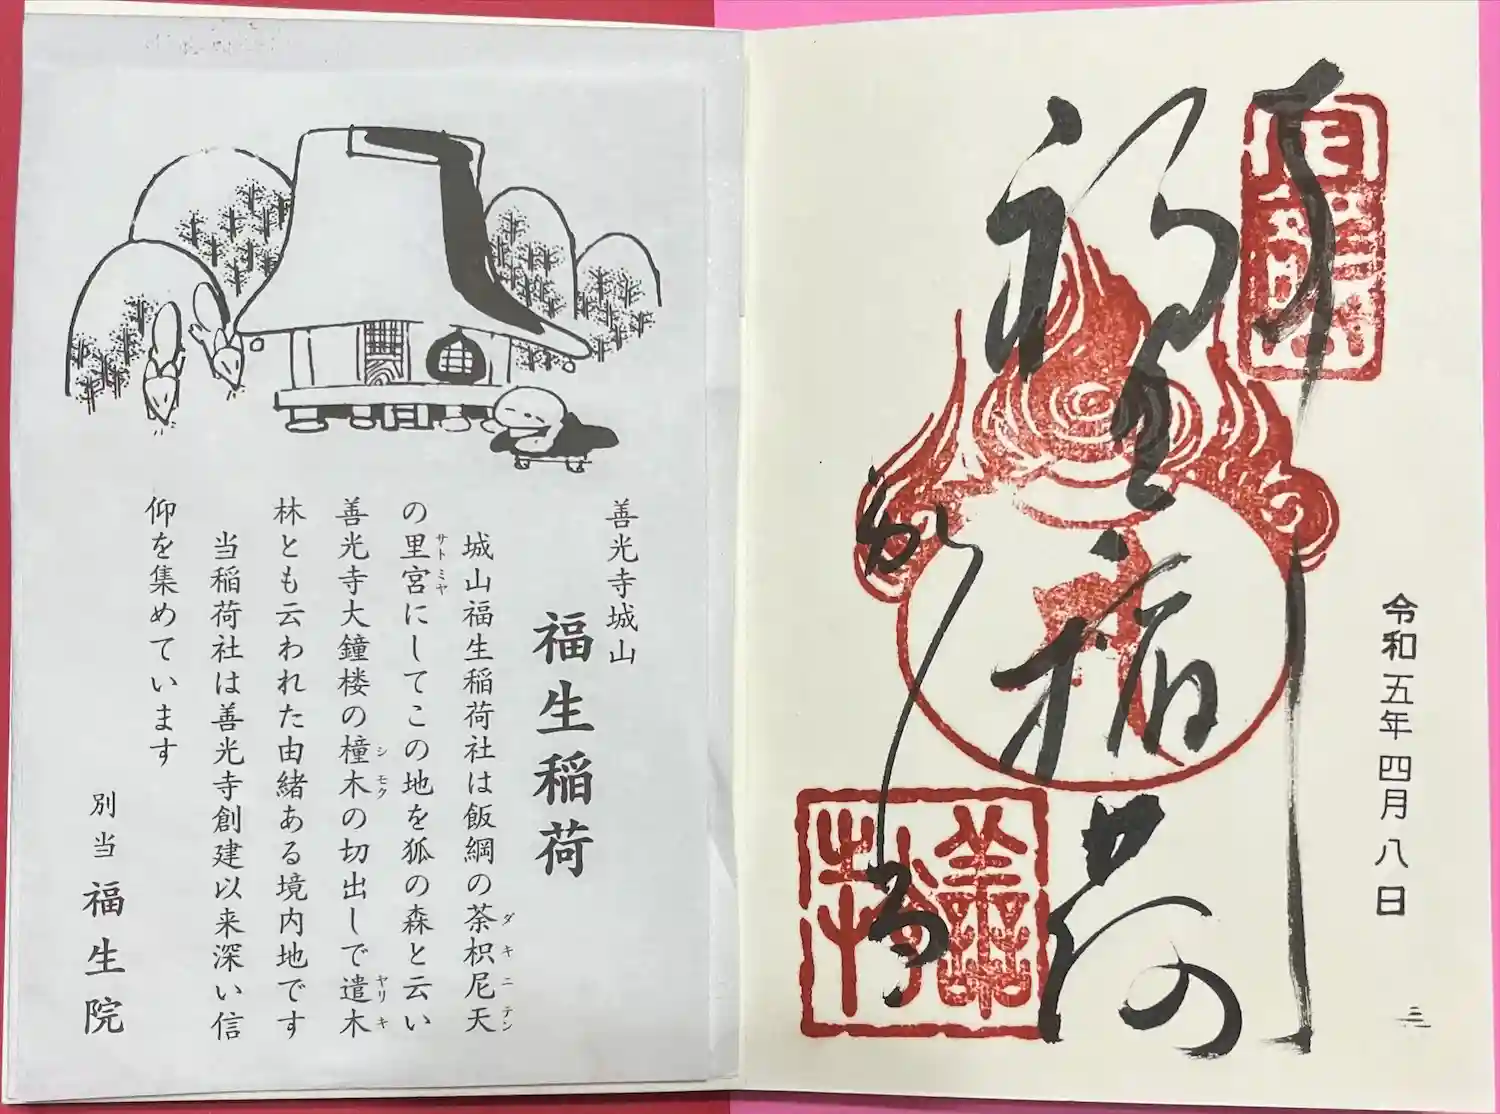 令和五年四月八日
福生稲荷
善光寺城山
福生稲荷
ダキニテン
城山福生稲荷社は飯綱の荼枳尼天
サトミヤ
の里宮にしてこの地を狐の森と云い
シモク ヤリキ
善光寺大鐘楼の橦木の切出しで遣木
林とも云われた由緒ある境内地です
当稲荷社は善光寺創建以来深い信
仰を集めています
別当 福生院